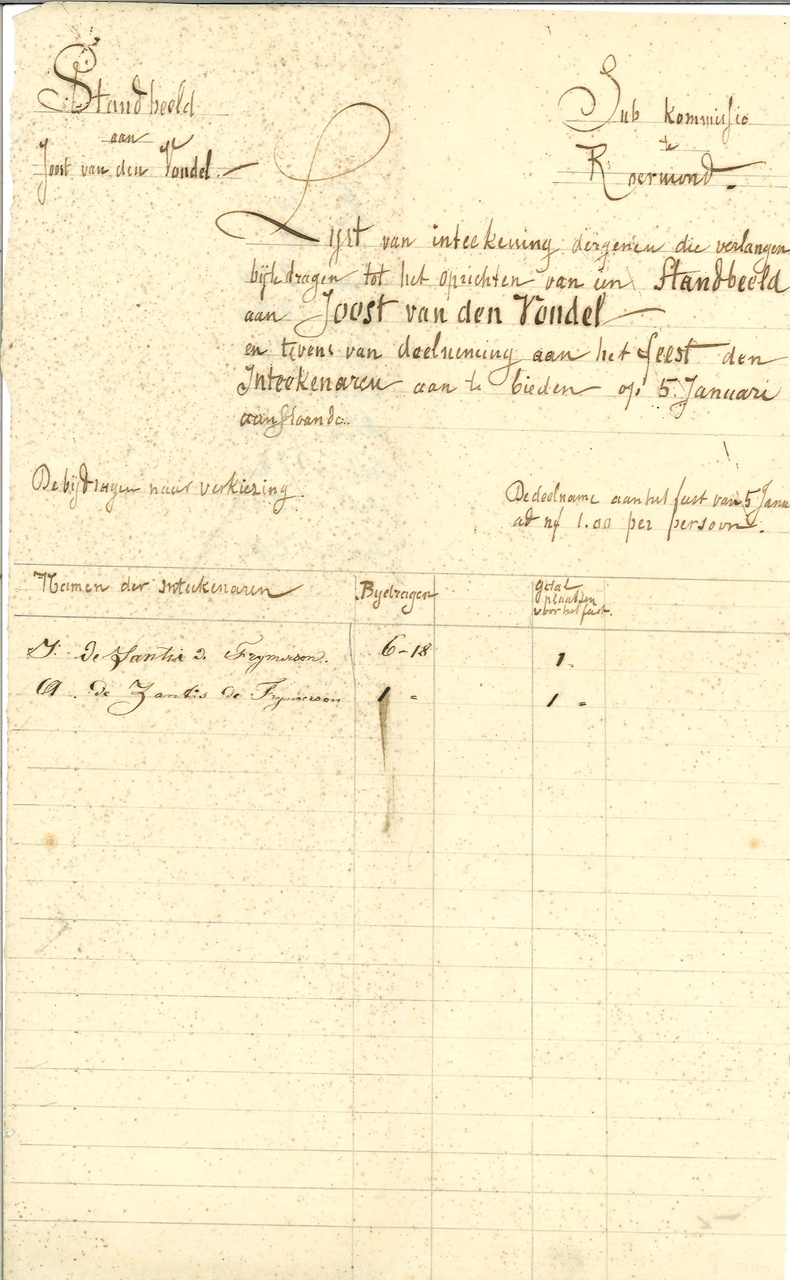 Standbeeld
aan
Joost van den Vondel.
Sub kommissie
te
Roermond.
Lijst van inteekening dergenen die verlangen
bijtedragen tot het oprichten van een Standbeeld
aan Joost van den Vondel
en tevens van deelneming aan het feest den
Inteekenaren aan te bieden op 5 Januari
aanstaande.
De bijdragen naar verkiezing.
De deelname aan het feest van 5 Janu
ad nf 1.00 per persoon.
Namen der inteekenaren
Bijedragen
getal
plaatsen
voor het feest.
de Zantis d. Frymerson. 6-18 1-
A. de Zantis de Frymerson 1 = 1 =